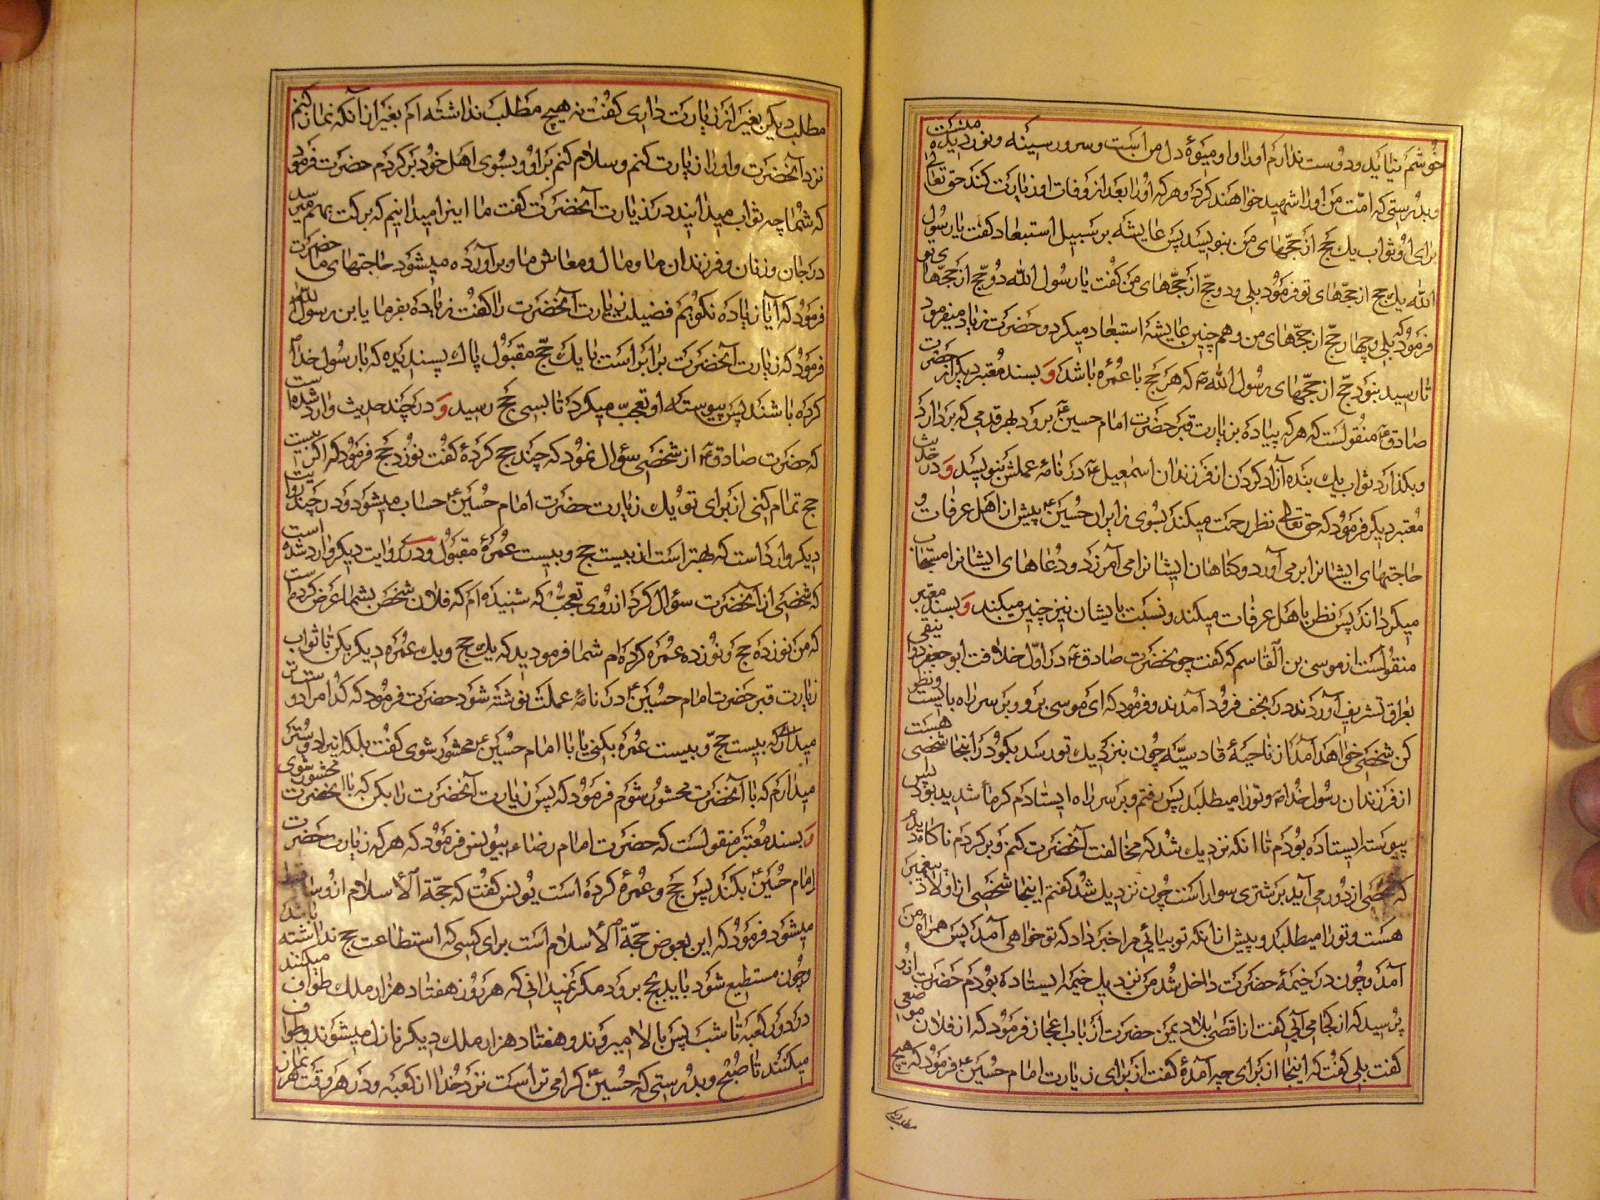 خوشم نیاید و دوست ندارم او را و او میوهٔ دل من است و سرور سینه و نور دیدهٔ منست
و بدرستی که امّت من او را شهید خواهند کرد و هر که او را بعد از وفات او زیارت کند حق تعالی
برای او ثواب یک حج از حجّهای من بنویسد پس عایشه بر سبیل استبعاد گفت یا رسول
الله یک حج از حجّهای تو فرمود بلی و دو حجّ از حجّهای من گفت یا رسول الله دو حجّ از حجّهای تو
فرمود که بلی و چهار حجّ از حجّهای من و هم چنین عایشه استبعاد میکرد و حضرت زیاد میفرمود
تا رسید بنود حجّ از حجّهای رسول الله ص که هر حج با عمره باشد و بسند معتبر دیگر از حضرت
صادق ع منقولست که هر که پیاده بزیارت قبر حضرت امام حسین ع برود بهر قدمی که بردارد
و بگذارد ثواب یک بنده آزاد کردن از فرزندان اسمعیل ع در نامهٔ عملش بنویسد و در حدیث
معتبر دیگر فرمود که حق تعالی نظر رحمت میکند بسوی زایران حسین ع پیش از اهل عرفات و
حاجتهای ایشانرا بر می آورد و گناهان ایشانرا می آمرزد و دعاهای ایشانرا مستجاب
میگرداند پس نظر باهل عرفات میکند و نسبت بایشان نیز چنین میکند و بسند معتبر
منقولست از موسی بن القاسم که گفت چون حضرت صادق ع در اوّل خلافت ابو جعفر دوانیقی
بعراق تشریف آوردند در نجف فرود آمدند و فرمود که ای موسی برو و بر سر راه بایست و نظر
کن شخصی خواهد آمد از ناحیهٔ قادسیّه چون بنزدیک تو رسد بگو در اینجا شخصی هست
از فرزندان رسول خدا ص و تو را میطلبد پس رفتم و بر سر راه ایستادم گرما شدید بود پس
پیوسته ایستاده بودم تا آنکه نزدیک شد که مخالفت آنحضرت کنم و برگردم ناگاه دیدم
که شخصی از دور می آید بر شتری سوار است چون نزدیک شد گفتم اینجا شخصی از اولاد پیغمبر
هست و تو را میطلبد و پیش از آنکه تو بیائی مرا خبر داد که تو خواهی آمد پس همراه من
آمد و چون در خیمهٔ حضرت داخل شد من نزدیک خیمه ایستاده بودم حضرت از او
پرسید که از کجا می آیی گفت از اقصی بلاد یمن حضرت از باب اعجاز فرمود که از فلان موضعی
گفت بلی گفت که اینجا از برای چه آمدهٔ گفت از برای زیارت امام حسین ع فرمود که هیچ
مطلب دیگر
مطلب دیگر بغیر از زیارت داری گفت نه هیچ مطلب نداشته ام بغیر از آنکه نماز کنم
نزد آنحضرت و او را زیارت کنم و سلام کنم بر او و بسوی اهل خود برگردم حضرت فرمود
که شما چه ثواب میدانید در زیارت آنحضرت گفت ما اینرا میدانیم که برکت بهم میرسد
در جان و زنان و فرزندان ما و مال و معاش ما و برآورده میشود حاجتهای ما حضرت
فرمود که آیا زیاده نگویم فضیلت زیارت آنحضرت را گفت زیاده بفرما یابن رسول الله
فرمود که زیارت آنحضرت برابر است با یک حجّ مقبول پاک پسندیده که با رسول خدا ص
کرده باشند پس پیوسته او تعجّب میکرد تا بسی حج رسید و در چند حدیث وارد شده است
که حضرت صادق ع از شخصی سؤال نمود که چند حج کردهٔ گفت نوزده حج فرمود که اگر بیست
حج تمام کنی از برای تو یک زیارت حضرت امام حسین ع حساب میشود و در چند روایت
دیگر وارد است که بهتر است از بیست حج و بیست عمرهٔ مقبول و در روایت دیگر وارد شده است
که شخصی از آنحضرت سؤال کرد از روی تعجّب که شنیده ام که فلان شخص بشما عرض کرده است
که من نوزده حج و نوزده عمره کرده ام شما فرمودید که یک حج و یک عمره دیگر بکن تا ثواب
زیارت قبر حضرت امام حسین ع در نامهٔ عملت نوشته شود حضرت فرمود که کدام را دوست تر
میداری که بیست حجّ و بیست عمره بکنی یا با امام حسین ع محشور شوی گفت بلکه اینرا دوستر
میدارم که با آنحضرت محشور شوم فرمود که پس زیارت آنحضرت را بکن که با آنحضرت محشور شوی
و بسند معتبر منقولست که حضرت امام رضاء بیونس فرمود که هر که زیارت حضرت
امام حسین ع بکند پس حج و عمره کرده است یونس گفت که حجّة الاسلام از او ساقط
میشود فرمود که این بعوض حجّة الاسلام است برای کسی که استطاعت حج نداشته باشد
و چون مستطیع شود باید بحج برود مگر نمیدانی که هر روز هفتاد هزار ملک طواف میکنند
در دور کعبه تا شب پس بالا میروند و هفتاد هزار ملک دیگر نازل میشوند و طواف
میکنند تا صبح و بدرستی که حسین ع گرامی تر است نزد خدا از کعبه و در هر وقت نماز هر